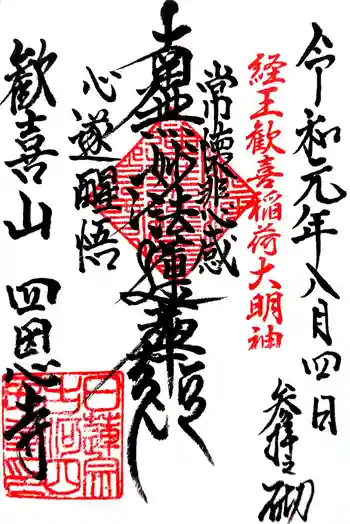 令和元年八月四日
参拝之砌
経王歓喜稲荷大明神
常懐悲感
南無妙法蓮華経
心遂醒悟
歓喜山 四恩寺